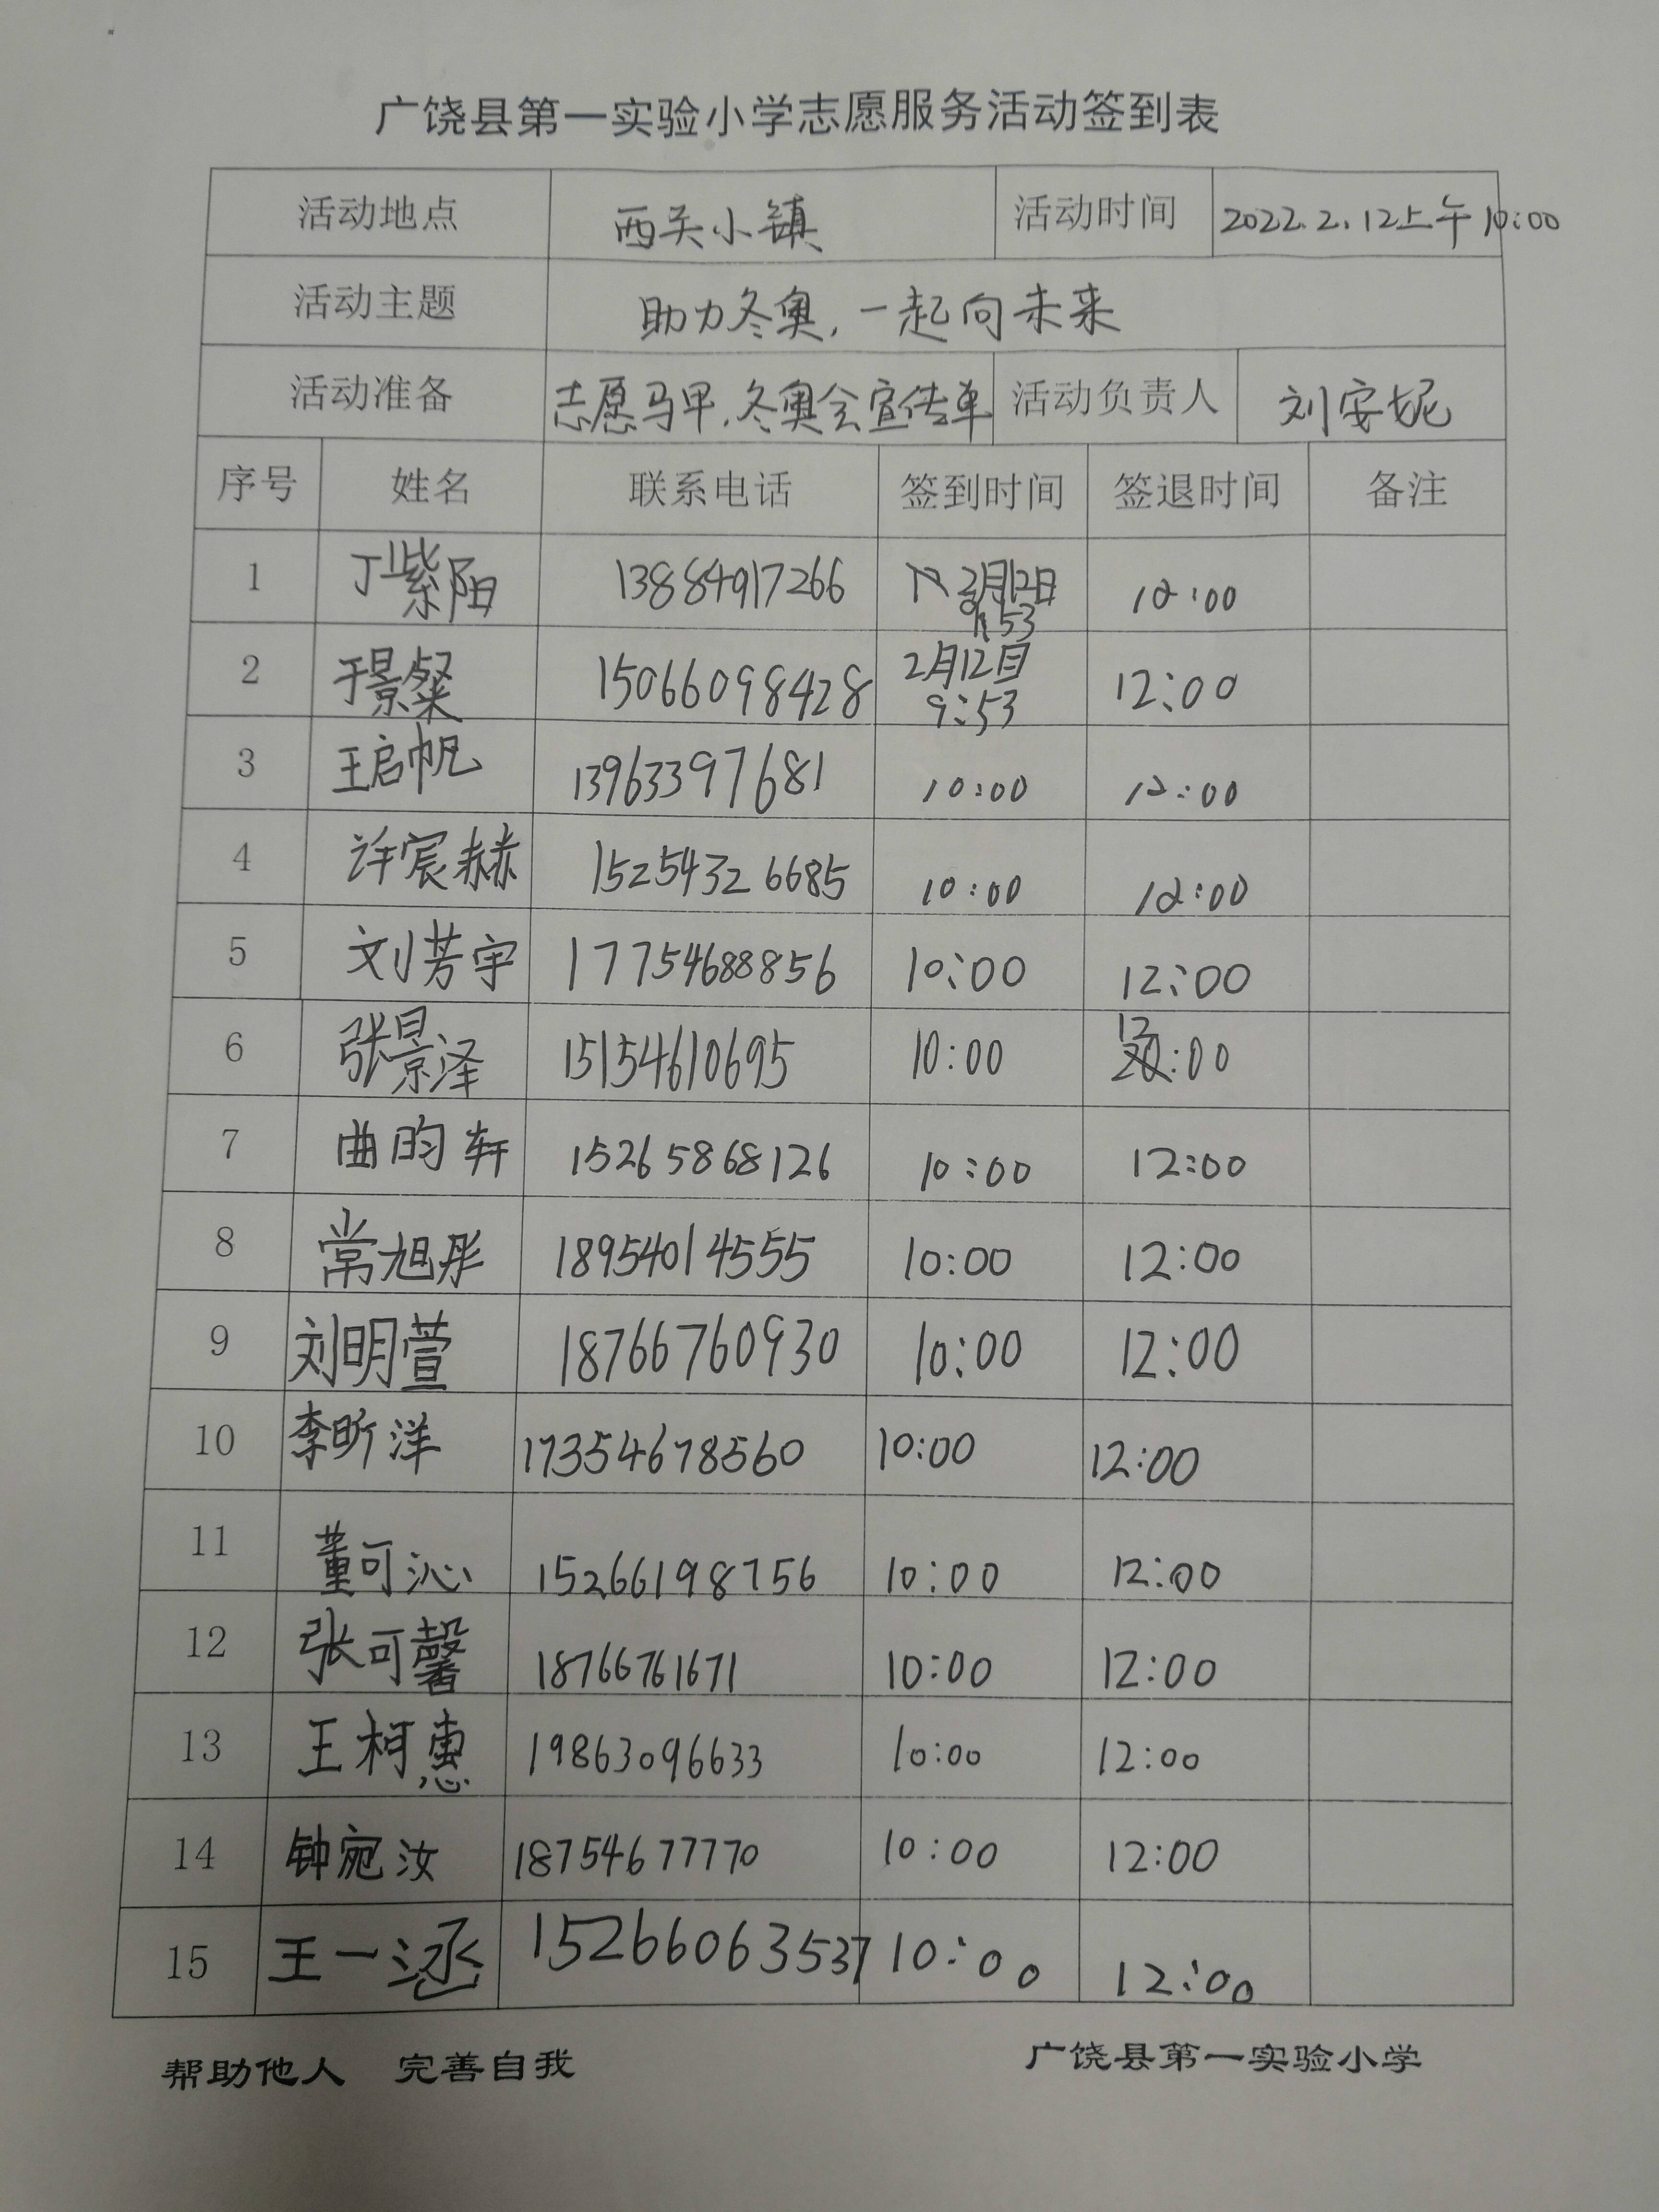 广饶县第一实验小学志愿服务活动签到表
活动地点 西关小镇 活动时间 2022.2.12上午10:00
活动主题 助力冬奥,一起向未来
活动准备 志愿马甲.冬奥会宣传单 活动负责人 刘安妮
序号 姓名 联系电话 签到时间 签退时间 备注
1 丁紫阳 13884917266 2月12日 9:53 12:00
2 于景燦 15066098428 2月12日 9:53 12:00
3 王启帆 13963397681 10:00 12:00
4 许宸赫 15254326685 10:00 12:00
5 刘芳宇 17754688856 10:00 12:00
6 张景泽 15154610695 10:00 12:00
7 曲昀轩 15265868126 10:00 12:00
8 常旭彤 18954014555 10:00 12:00
9 刘明萱 18766760930 10:00 12:00
10 李昕洋 17354678560 10:00 12:00
11 董可沁 15266198756 10:00 12:00
12 张可馨 18766761671 10:00 12:00
13 王柯惠 19863096633 10:00 12:00
14 钟宛汝 18754677770 10:00 12:00
15 王一涵 15266063537 10:00 12:00
帮助他人 完善自我 广饶县第一实验小学